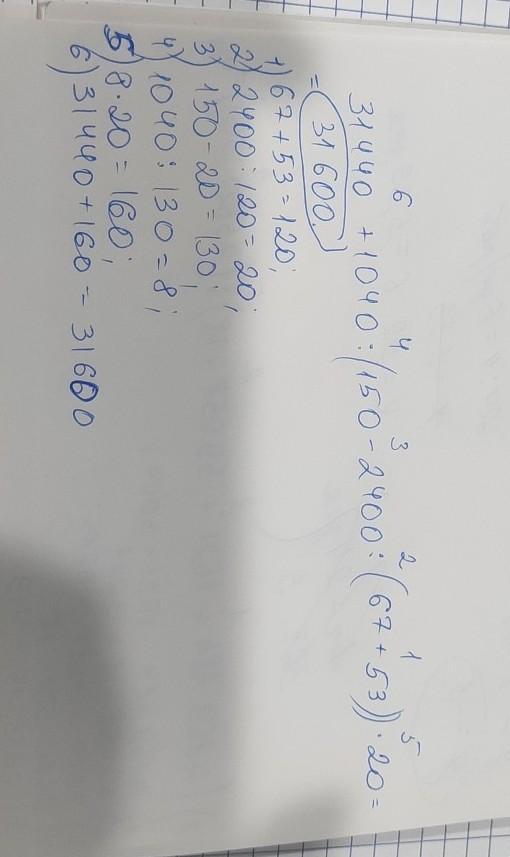 6 4 3 2 1 5
31440 + 1040 : (150 - 2400 : (67 + 53)) · 20 =
= 31600.
1) 67 + 53 = 120;
2) 2400 : 120 = 20;
3) 150 - 20 = 130;
4) 1040 : 130 = 8;
5) 8 · 20 = 160;
6) 31440 + 160 = 31600